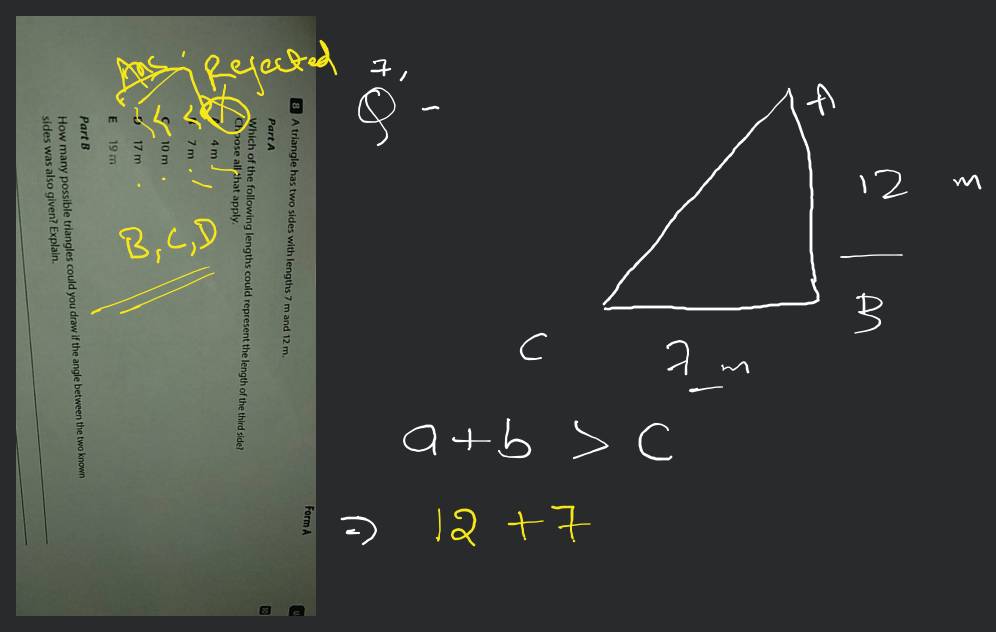 Form A
8 A triangle has two sides with lengths 7 m and 12 m.
Part A
Which of the following lengths could represent the length of the third side?
Choose all that apply.
4 m
7 m
10 m
17 m
E 19 m
Part B
How many possible triangles could you draw if the angle between the two known
sides was also given? Explain.
Ans: Rejected
B, C, D
7,
Q -
A
12 m
B
C
7 m
a+b > C
⇒ 12 + 7